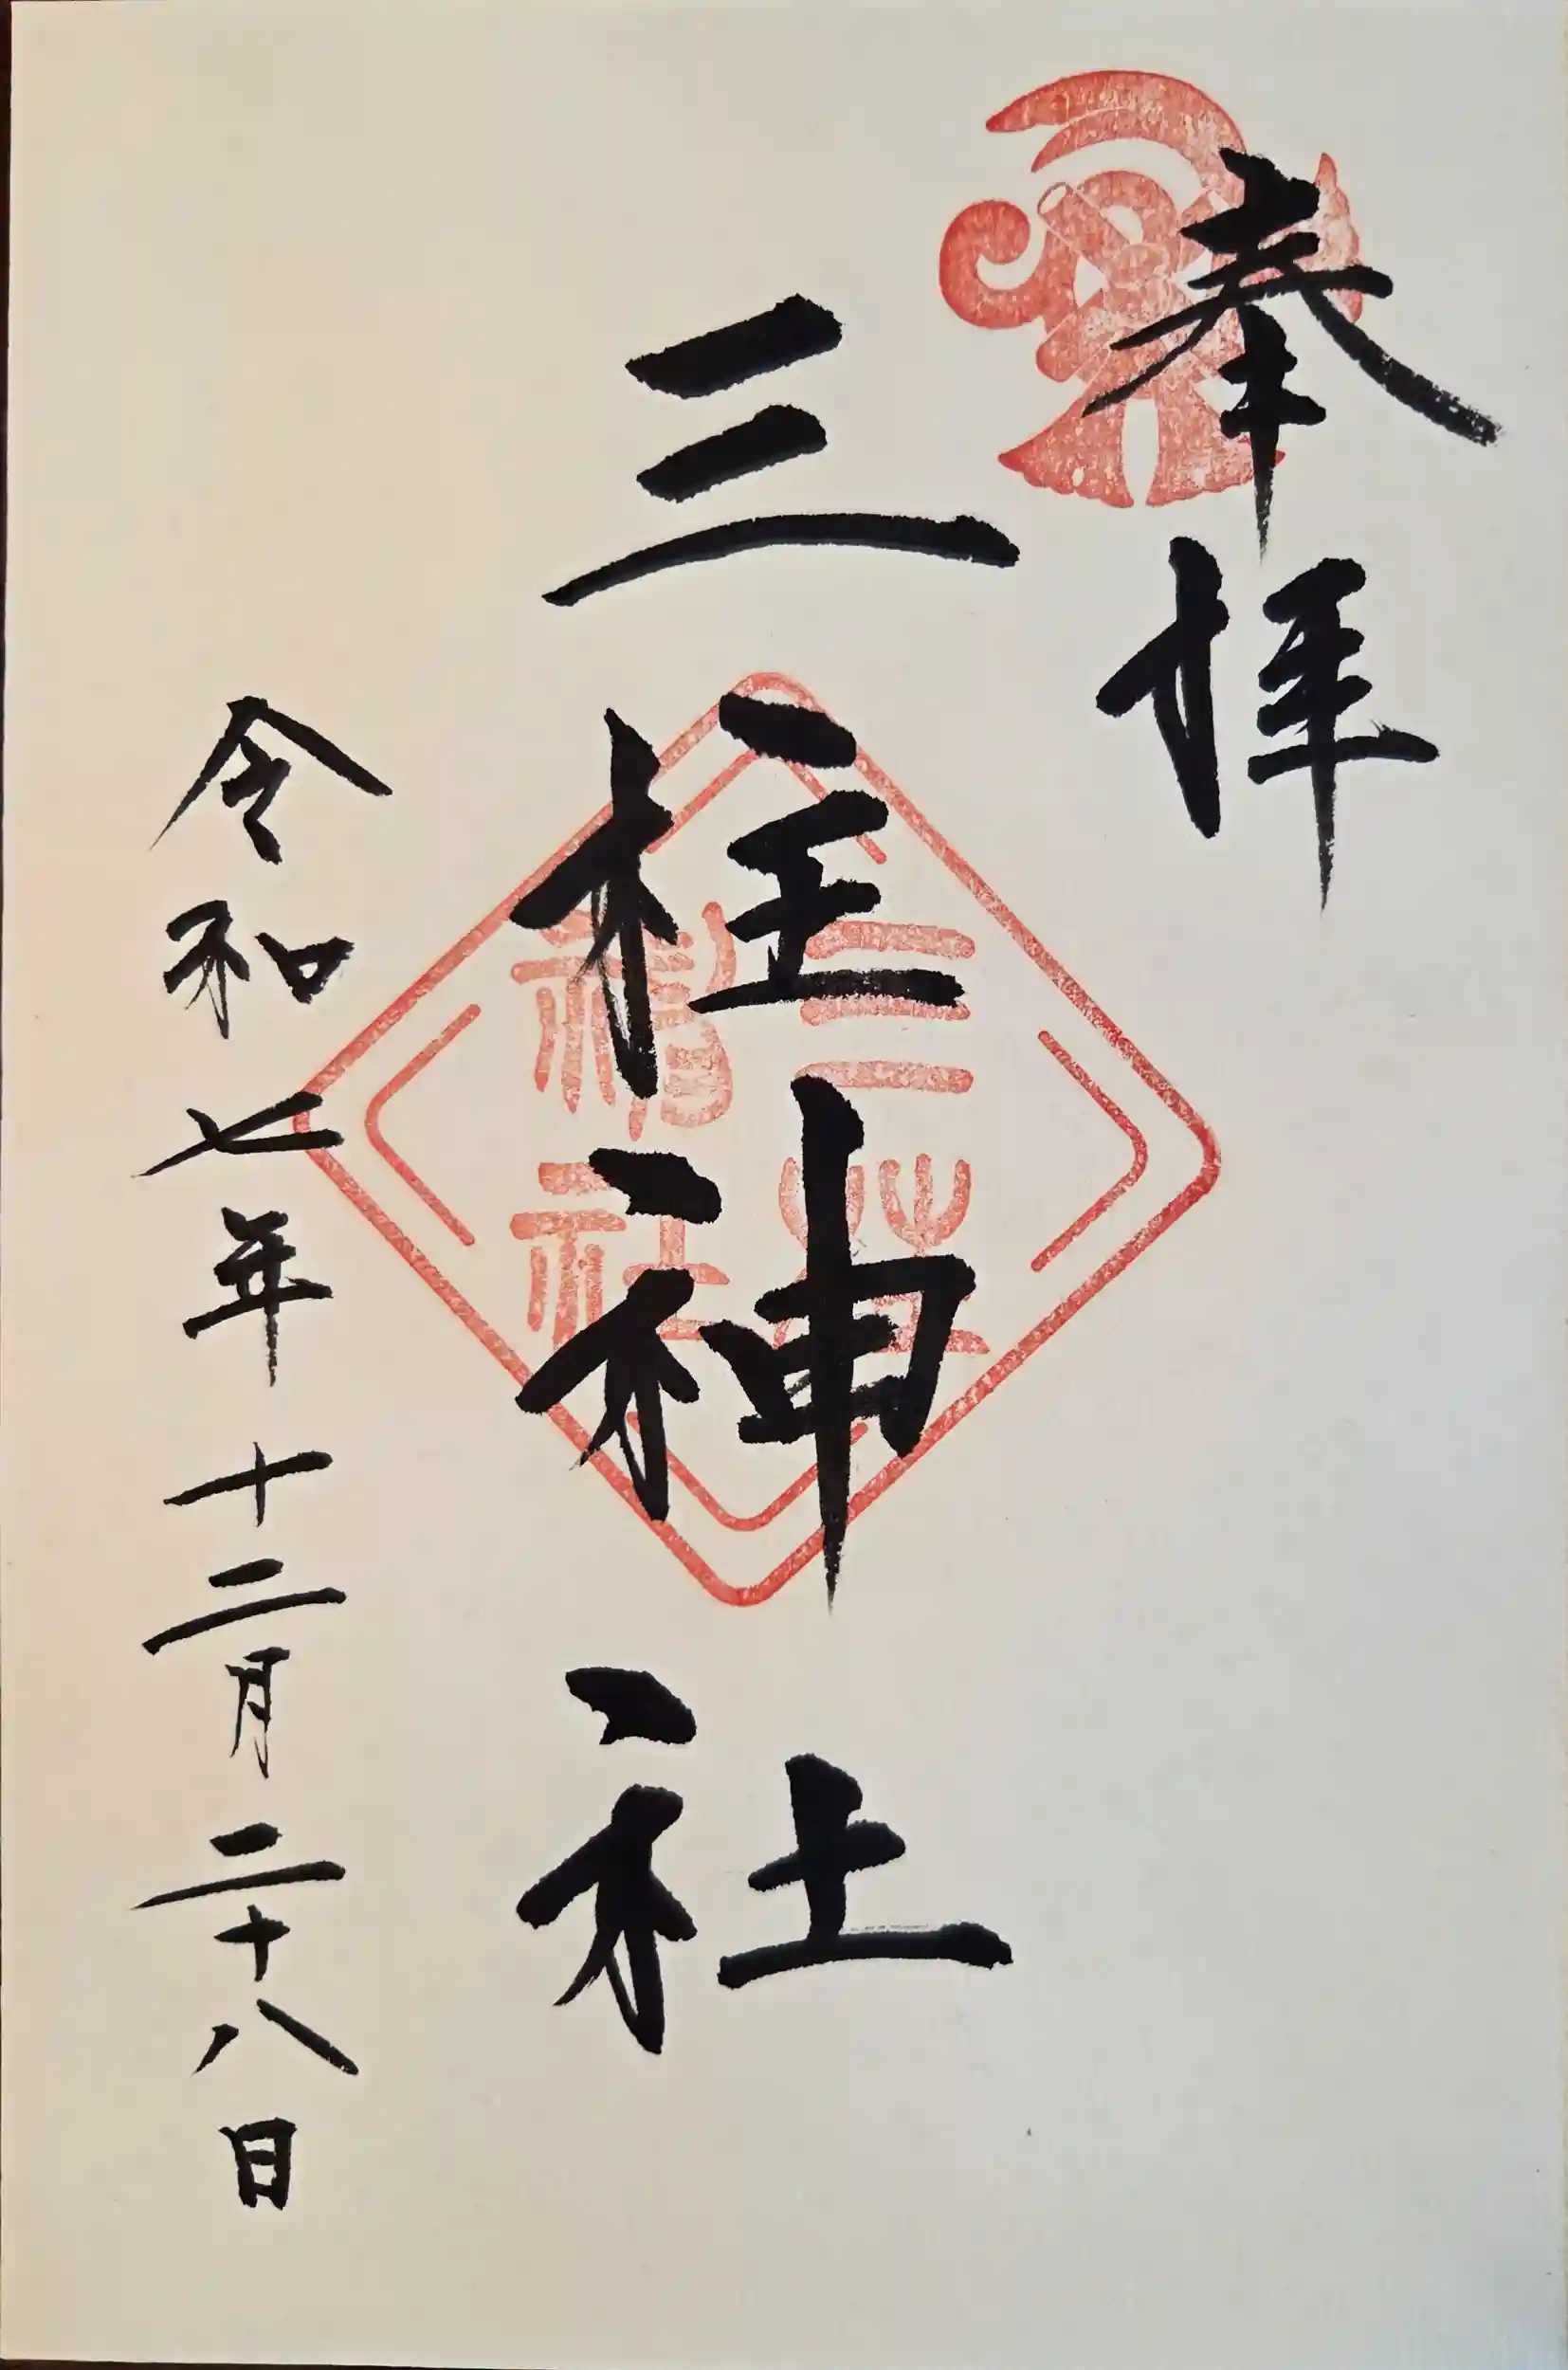 奉拝
三柱神社
三柱神社
令和七年十二月二十八日